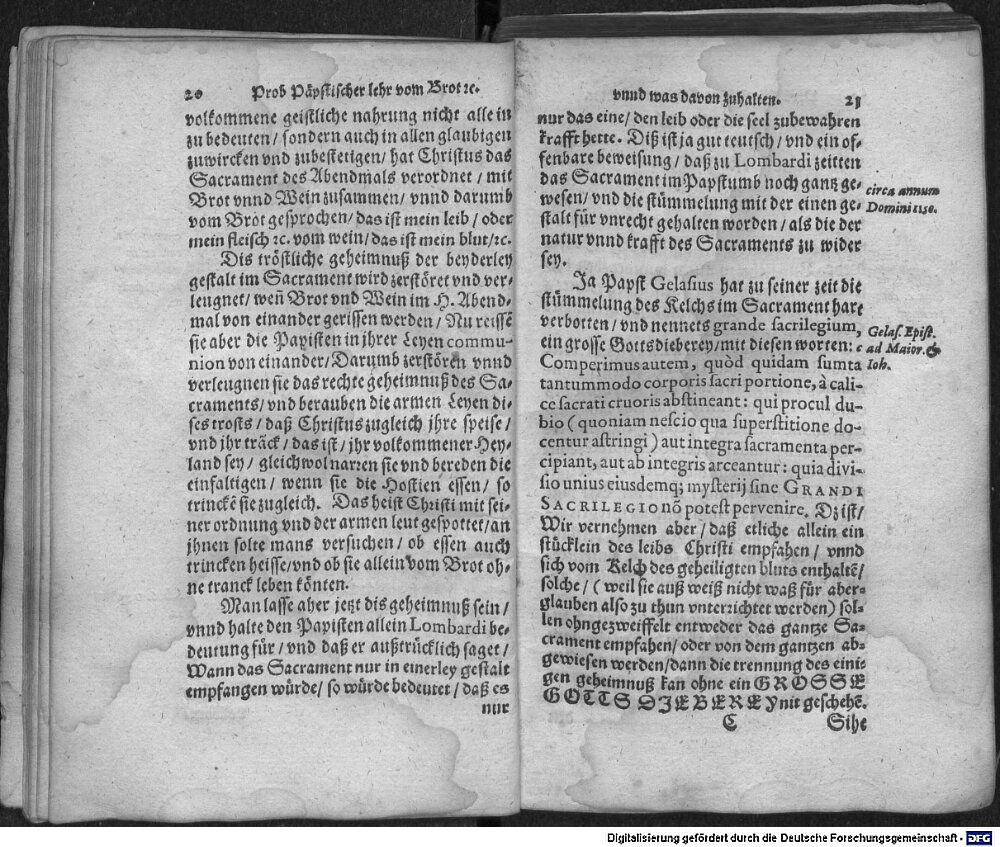 20 Prob Päpstischer lehr vom Brot ꝛc.
volkommene geistliche nahrung nicht allein
zu bedeuten / sondern auch in allen glaubigen
zuwircken vnd zubestetigen / hat Christus das
Sacrament des Abendmals verordnet / mit
Brot vnnd Wein zusammen / vnnd darumb
vom Brot gesprochen / das ist mein leib / oder
mein fleisch ꝛc. vom wein / das ist mein blut / ꝛc.
Dis tröstliche geheimnuß der beyderley
gestalt im Sacrament wird zerstöret vnd ver-
leugnet / wenn̄ Brot vnd Wein im H. Abend-
mal von einander gerissen werden / Nu reissē
sie aber die Papisten in jhrer Leyen commu-
nion von einander / Darumb zerstören vnnd
verleugnen sie das rechte geheimnuß des Sa-
craments / vnd berauben die armen Leyen di-
ses trosts / daß Christus zugleich jhre speise /
vnd jhr träck / das ist / jhr volkommener Hey-
land sey / gleichwol narren sie vnd bereden die
einfaltigen / wenn sie die Hostien essen / so
trinckē sie zugleich. Das heist Christi mit sei-
ner ordnung vnd der armen leut gespottet / an
jhnen solte mans versuchen / ob essen auch
trincken heisse / vnd ob sie allein vom Brot oh-
ne tranck leben könten.
Man lasse aber jetzt dis geheimnuß sein /
vnnd halte den Papisten allein Lombardi be-
deutung für / vnd daß er außtrücklich saget /
Wann das Sacrament nur in einerley gestalt
empfangen würde / so würde bedeutet / daß es
nur
vnnd was davon zuhalten. 21
nur das eine / den leib oder die seel zubewahren
krafft hette. Diß ist ja gut teutsch / vnd ein of-
fenbare beweisung / daß zu Lombardi zeitten
das Sacrament im Papstumb noch gantz ge-
wesen / vnd die stümmelung mit der einen ge-
stalt für vnrecht gehalten worden / als die der
natur vnnd krafft des Sacraments zu wider
sey.
circa annum
Domini 1150.
Ja Papst Gelasius hat zu seiner zeit die
stümmelung des Kelchs im Sacrament hart
verbotten / vnd nennets grande sacrilegium,
ein grosse Gottsdieberey / mit diesen worten:
Comperimus autem, quòd quidam sumta
tantummodo corporis sacri portione, à cali-
ce sacrati cruoris abstineant: qui procul du-
bio (quoniam nescio qua superstitione do-
centur astringi) aut integra sacramenta per-
cipiant, aut ab integris arceantur: quia divi-
sio unius eiusdemq; mysterij sine GRANDI
SACRILEGIO nō potest pervenire. Dz ist /
Wir vernehmen aber / daß etliche allein ein
stücklein des leibs Christi empfahen / vnnd
sich vom Kelch des geheiligten bluts enthaltē /
solche / (weil sie auß weiß nicht waß für aber-
glauben also zu thun vnterrichtet werden) sol-
len ohngezweiffelt entweder das gantze Sa-
crament empfahen / oder von dem gantzen ab-
gewiesen werden / dann die trennung des eini-
gen geheimnuß kan ohne ein GROSSE
GOTTSDIEBEREY nit geschehē.
C Sihe
Gelas. Epist.
ad Maior. &
Ioh.
Digitalisierung gefördert durch die Deutsche Forschungsgemeinschaft - DFG